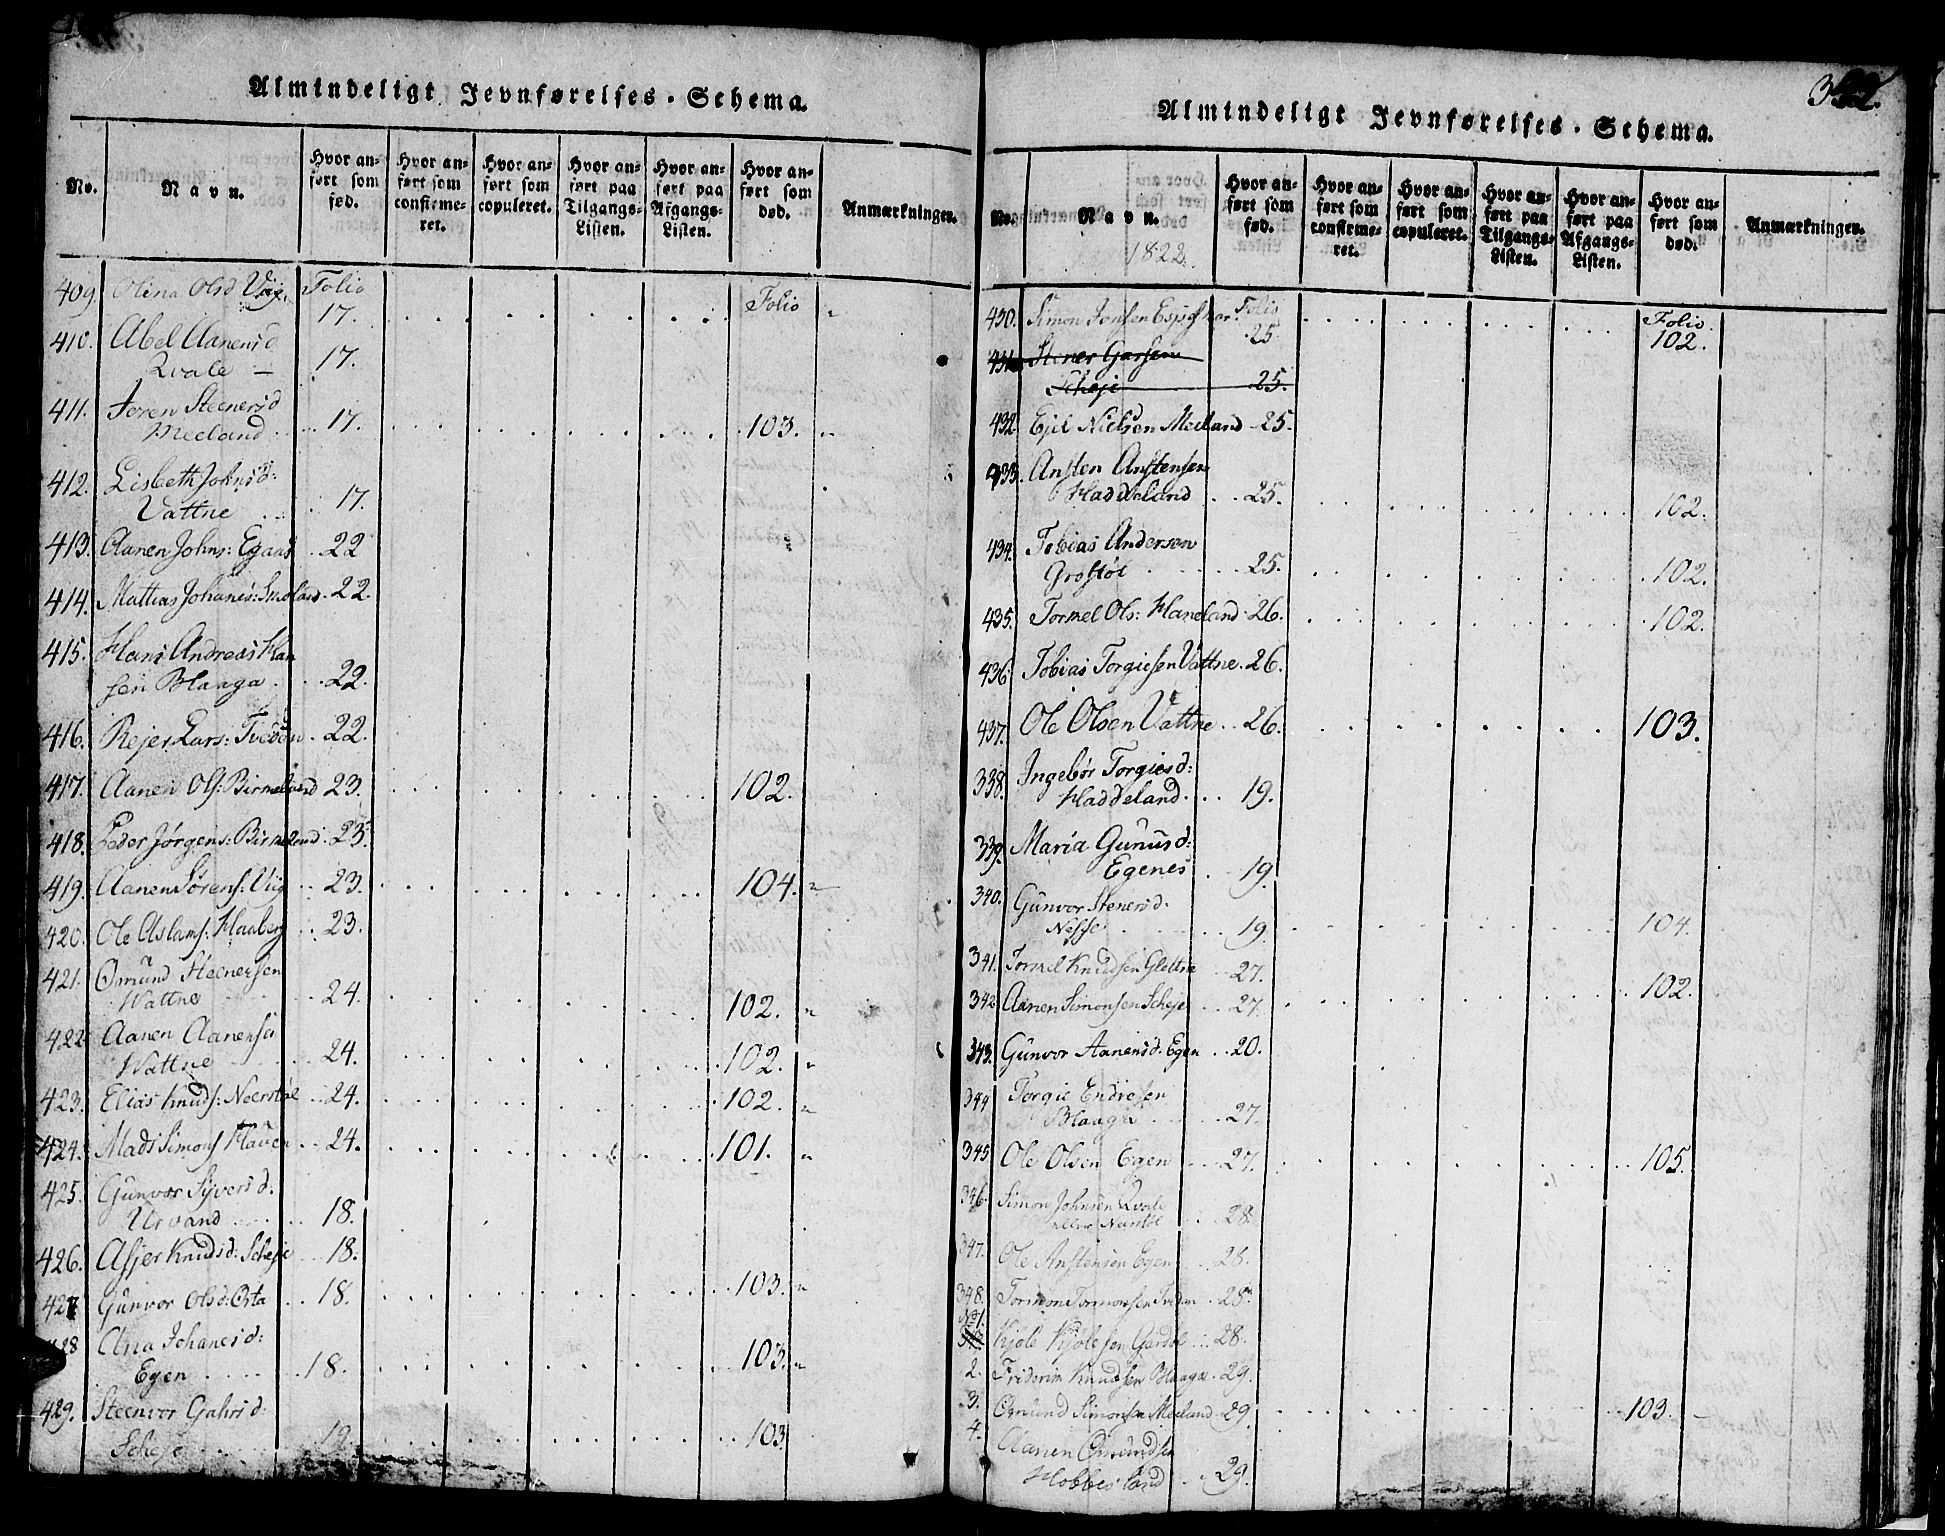 Almindeligt Jevnførelses-Schema.
No.
Navn.
Hvor anført som fød.
Hvor anført som confirmeret.
Hvor anført som copuleret.
Hvor anført paa Tilgangs-Listen.
Hvor anført paa Afgangs-Listen.
Hvor anført som død.
Anmærkninger.
409. Olina Olsd Viig. Folio Folio
17.
410. Abel Aanensd
Qvale 17.
411. Joren Steenersd
Meeland 17. 103.
412. Lisbeth Johnsd:
Vattne 17.
413. Aanen Johns: Egaas 22
414. Mattias Johanes: Smeland 22.
415. Hans Andreas Han
sen Blaaga 22.
416. Rejer Lars: Tveden 22.
417. Aanen Ols: Birmeland 23.
102.
418. Peder Jørgens: Birkeland 23.
419. Aanen Sørens: Viig 23. 104.
420. Ole Aslams: Haaberg 23.
421. Omund Steenersen
Wattne 24. 102.
422. Aanen Aanensen
Wattne 24. 102.
423. Elias Knuds: Neerstøl 24. 102.
424. Mads Simons Haven 24. 101.
425. Gunvor Syversd.
Urvand 18.
426. Asjer Knudsd: Scheje 18.
427 Gunvor Olsd: Osta 18. 103.
428 Ana Johanesd:
Egen 18. 103.
429. Steenvor Gahrsd:
Scheje 19 103
Almindeligt Jevnførelses-Schema.
No.
Navn.
1822.
Hvor anført som fød.
Hvor anført som confirmeret.
Hvor anført som copuleret.
Hvor anført paa Tilgangs-Listen.
Hvor anført paa Afgangs-Listen.
Hvor anført som død.
Anmærkninger.
430. Simon Jonsen Folio Folio.
25 102.
431. Stener Garsen
Scheje 25.
432. Ejel Nielsen Meeland 25.
433. Ansten Anstensen
Haddeland 25. 102.
434. Tobias Anderson
Grostøl 25. 102.
435. Tormel Ols: Haneland 26. 102.
436. Tobias Torgiesen Vattne 26.
437. Ole Olsen Vattne 26. 103.
338. Ingebór Torgiesd:
Haddeland 19.
339. Maria Gunusd:
Egenes 19.
340. Gunvor Stenersd.
Nesse 19. 104.
341. Tormel Knudsen Glettne 27.
342. Aanen Simonsen Scheje 27. 102.
343. Gunvor Aanensd. Egen 20.
344 Torgie Endresen
Blaaga 27.
345 Ole Olsen Egen 27. 105.
346. Simon Johnsen Qvale
28.
347. Ole Anstensen Egen 28.
348. Tormon Tormonsen 28.
No 1. Kjole Kjolesen 28.
2. Friderim Knudsen Blaaga 29.
3. Omund Simonsen Meeland 29. 103.
4. Aanen Omundsen
Hobbesland 29.